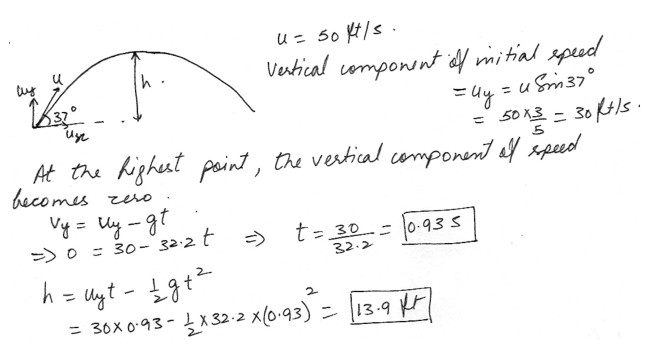 u = 50 ft/s.
Vertical component of initial speed
= uy = u Sin37°
= 50×3/5 = 30 ft/s.
uy u h.
37°
ux
At the highest point, the vertical component of speed
becomes zero.
Vy = uy − gt
⇒ 0 = 30 − 32.2 t ⇒ t = 30/32.2 = 0.93 s
h = uyt − 1/2 gt²
= 30×0.93 − 1/2 × 32.2 × (0.93)² = 13.9 ft